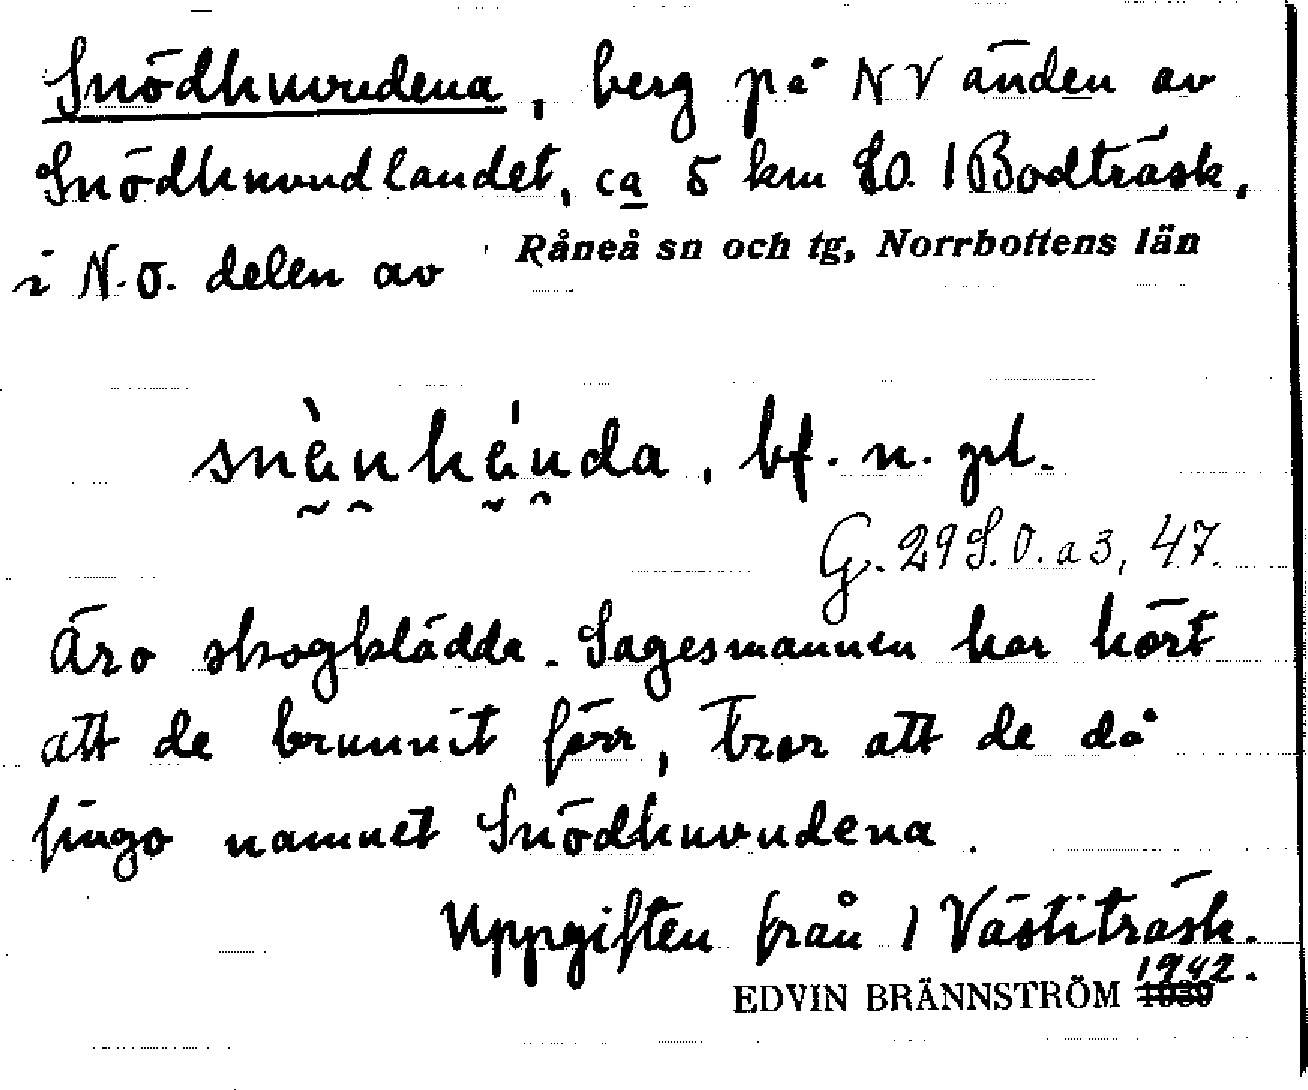 Snödhuvudena, berg på NV änden av
Snödhuvudlandet, ca 5 km SO. 1 Bodträsk,
i N.O. delen av Råneå sn och tg, Norrbottens län
bf. n. pl.
G. 29 S.O. a 3, 47.
Äro skogklädda. Sagesmannen har hört
att de brunnit förr, tror att de då
fingo namnet Snödhuvudena.
Uppgiften från 1 Västiträsk.
EDVIN BRÄNNSTRÖM 1942.